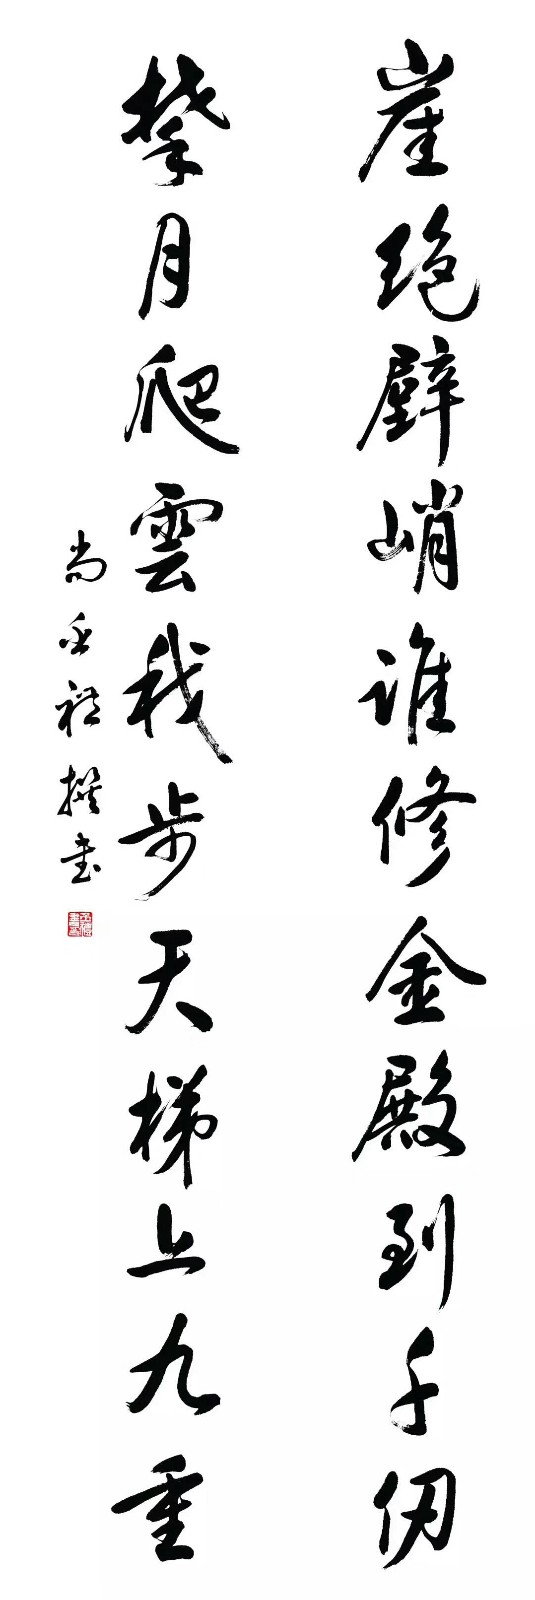 崖绝壁峭谁修金殿到千仞
攀月爬雲我步天梯上九重
尚禮撰书